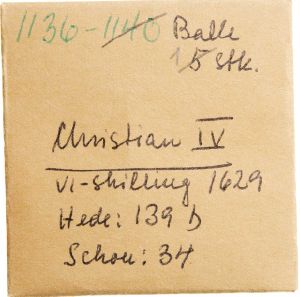 1136-1140 Balle
15 Stk.
Christian IV
VI-skilling 1629
Hede: 139 b
Schou: 34